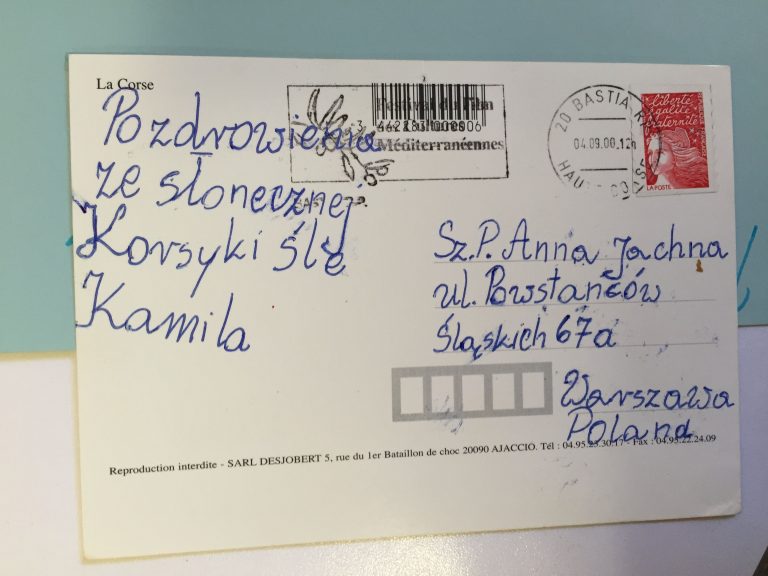 La Corse
Pozdrowienia
ze słonecznej
Korsyki ślę
Kamila
Festival du Film
des Cultures
Méditerranéennes
20 BASTIA R.P.
04.09.00.12h
HAUTE CORSE
liberté
égalité
fraternité
LA POSTE
Sz.P. Anna Jachna
ul. Powstańców
Śląskich 67a
Warszawa
Poland
Reproduction interdite - SARL DESJOBERT 5, rue du 1er Bataillon de choc 20090 AJACCIO. Tél : 04.95.23.30.17 - Fax : 04.95.22.24.09